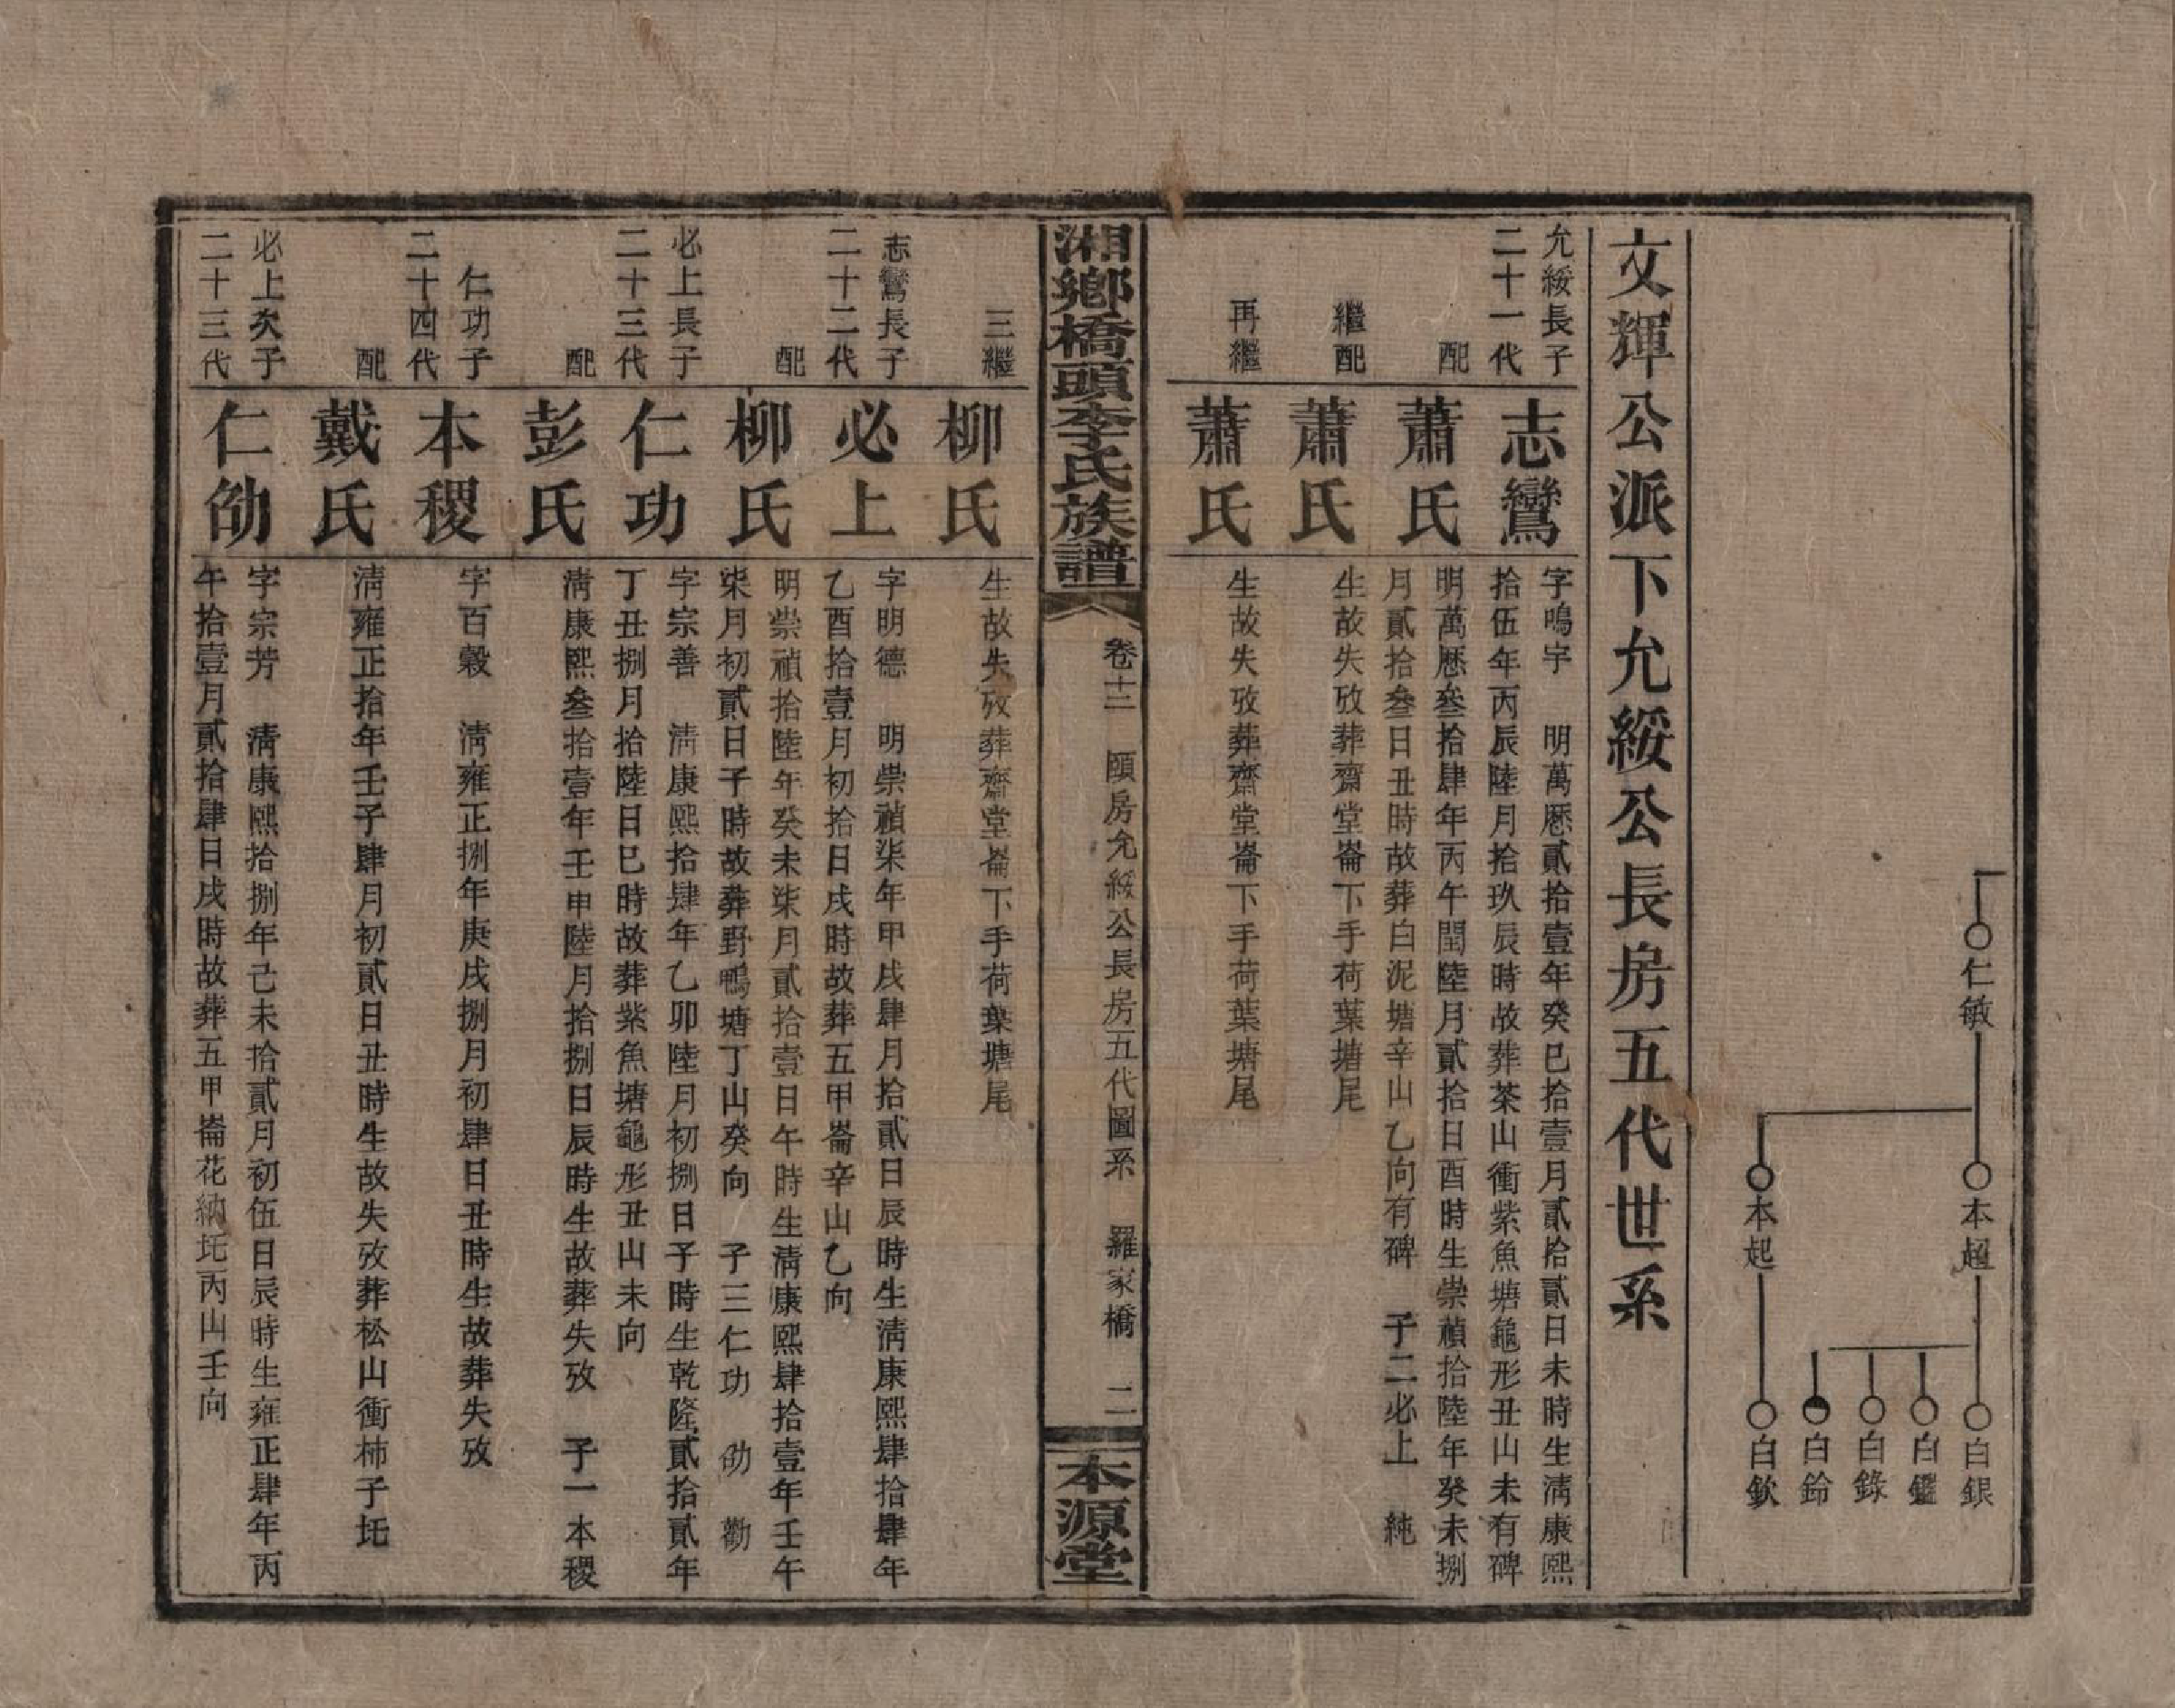 仁敏
本超
本起
白銀
白鑑
白錄
白鈴
白欽
文輝公派下允綏公長房五代世系
允綏長子
二十一代
志鸞
字鳴宇　明萬曆貳拾壹年癸巳拾壹月貳拾貳日未時生清康熙
拾伍年丙辰陸月拾玖辰時故葬茶山衝紫魚塘龜形丑山未有碑
配
蕭氏
明萬曆叁拾肆年丙午閏陸月貳拾日酉時生崇禎拾陸年癸未捌
月貳拾叁日丑時故葬白泥塘辛山乙向有碑　子二必上　純
繼配
蕭氏
生故失攷葬齋堂崙下手荷葉塘尾
再繼
蕭氏
生故失攷葬齋堂崙下手荷葉塘尾
湘鄉橋頭李氏族譜
卷十二　頤房允綏公長房五代圖系　羅家橋　二
本源堂
三繼
柳氏
生故失攷葬齋堂崙下手荷葉塘尾
志鸞長子
二十二代
必上
字明德　明崇禎柒年甲戌肆月拾貳日辰時生清康熙肆拾肆年
乙酉拾壹月初拾日戌時故葬五甲崙辛山乙向
配
柳氏
明崇禎拾陸年癸未柒月貳拾壹日午時生清康熙肆拾壹年壬午
柒月初貳日子時故葬野鴨塘丁山癸向　子三仁功　劬　勸
必上長子
二十三代
仁功
字宗善　清康熙拾肆年乙卯陸月初捌日子時生乾隆貳拾貳年
丁丑捌月拾陸日巳時故葬紫魚塘龜形丑山未向
配
彭氏
清康熙叁拾壹年壬申陸月拾捌日辰時生故葬失攷　子一本稷
仁功子
二十四代
本稷
字百穀　清雍正捌年庚戌捌月初肆日丑時生故葬失攷
配
戴氏
清雍正拾年壬子肆月初貳日丑時生故失攷葬松山衝柿子坵
必上次子
二十三代
仁劬
字宗芳　清康熙拾捌年己未拾貳月初伍日辰時生雍正肆年丙
午拾壹月貳拾肆日戌時故葬五甲崙花納坵丙山壬向